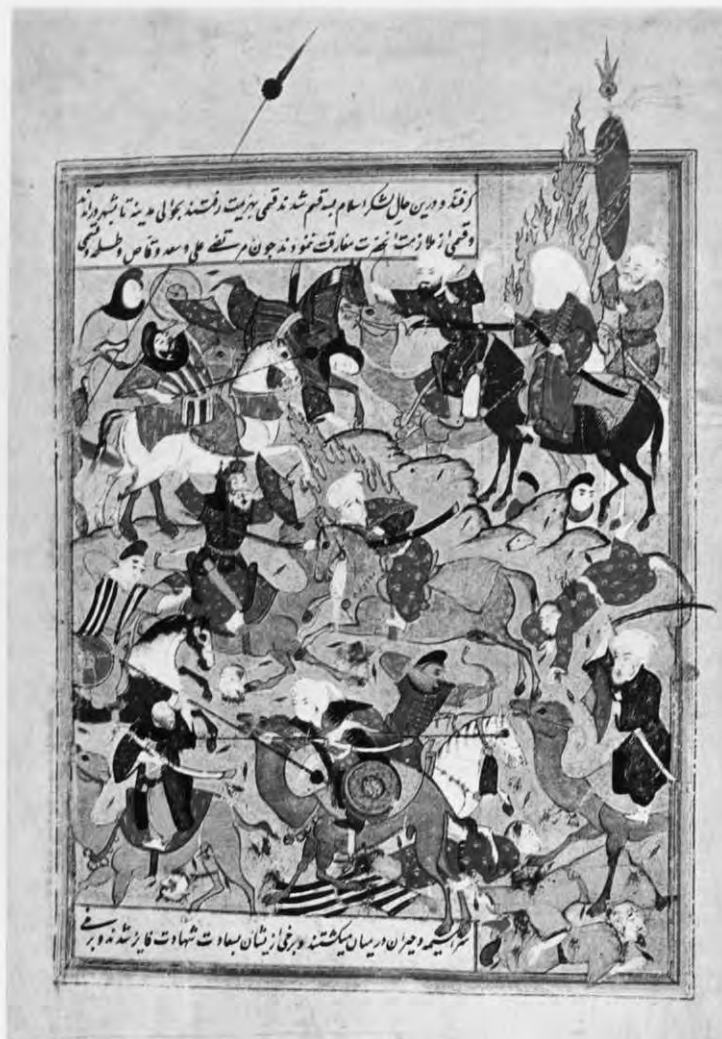 گرفتند و درین حال لشکر اسلام بسه قسم شدند قسمی بهزیمت رفتند بحوالی مدینه تا بشهر درآمدند
و قسمی از ملازمت آنحضرت مفارقت ننمودند چون مرتضی علی و سعد وقاص و طلحه و قسمی
سراسیمه و حیران در میان میکشتند و برخی ازیشان بسعادت شهادت فایز شدند و برخی